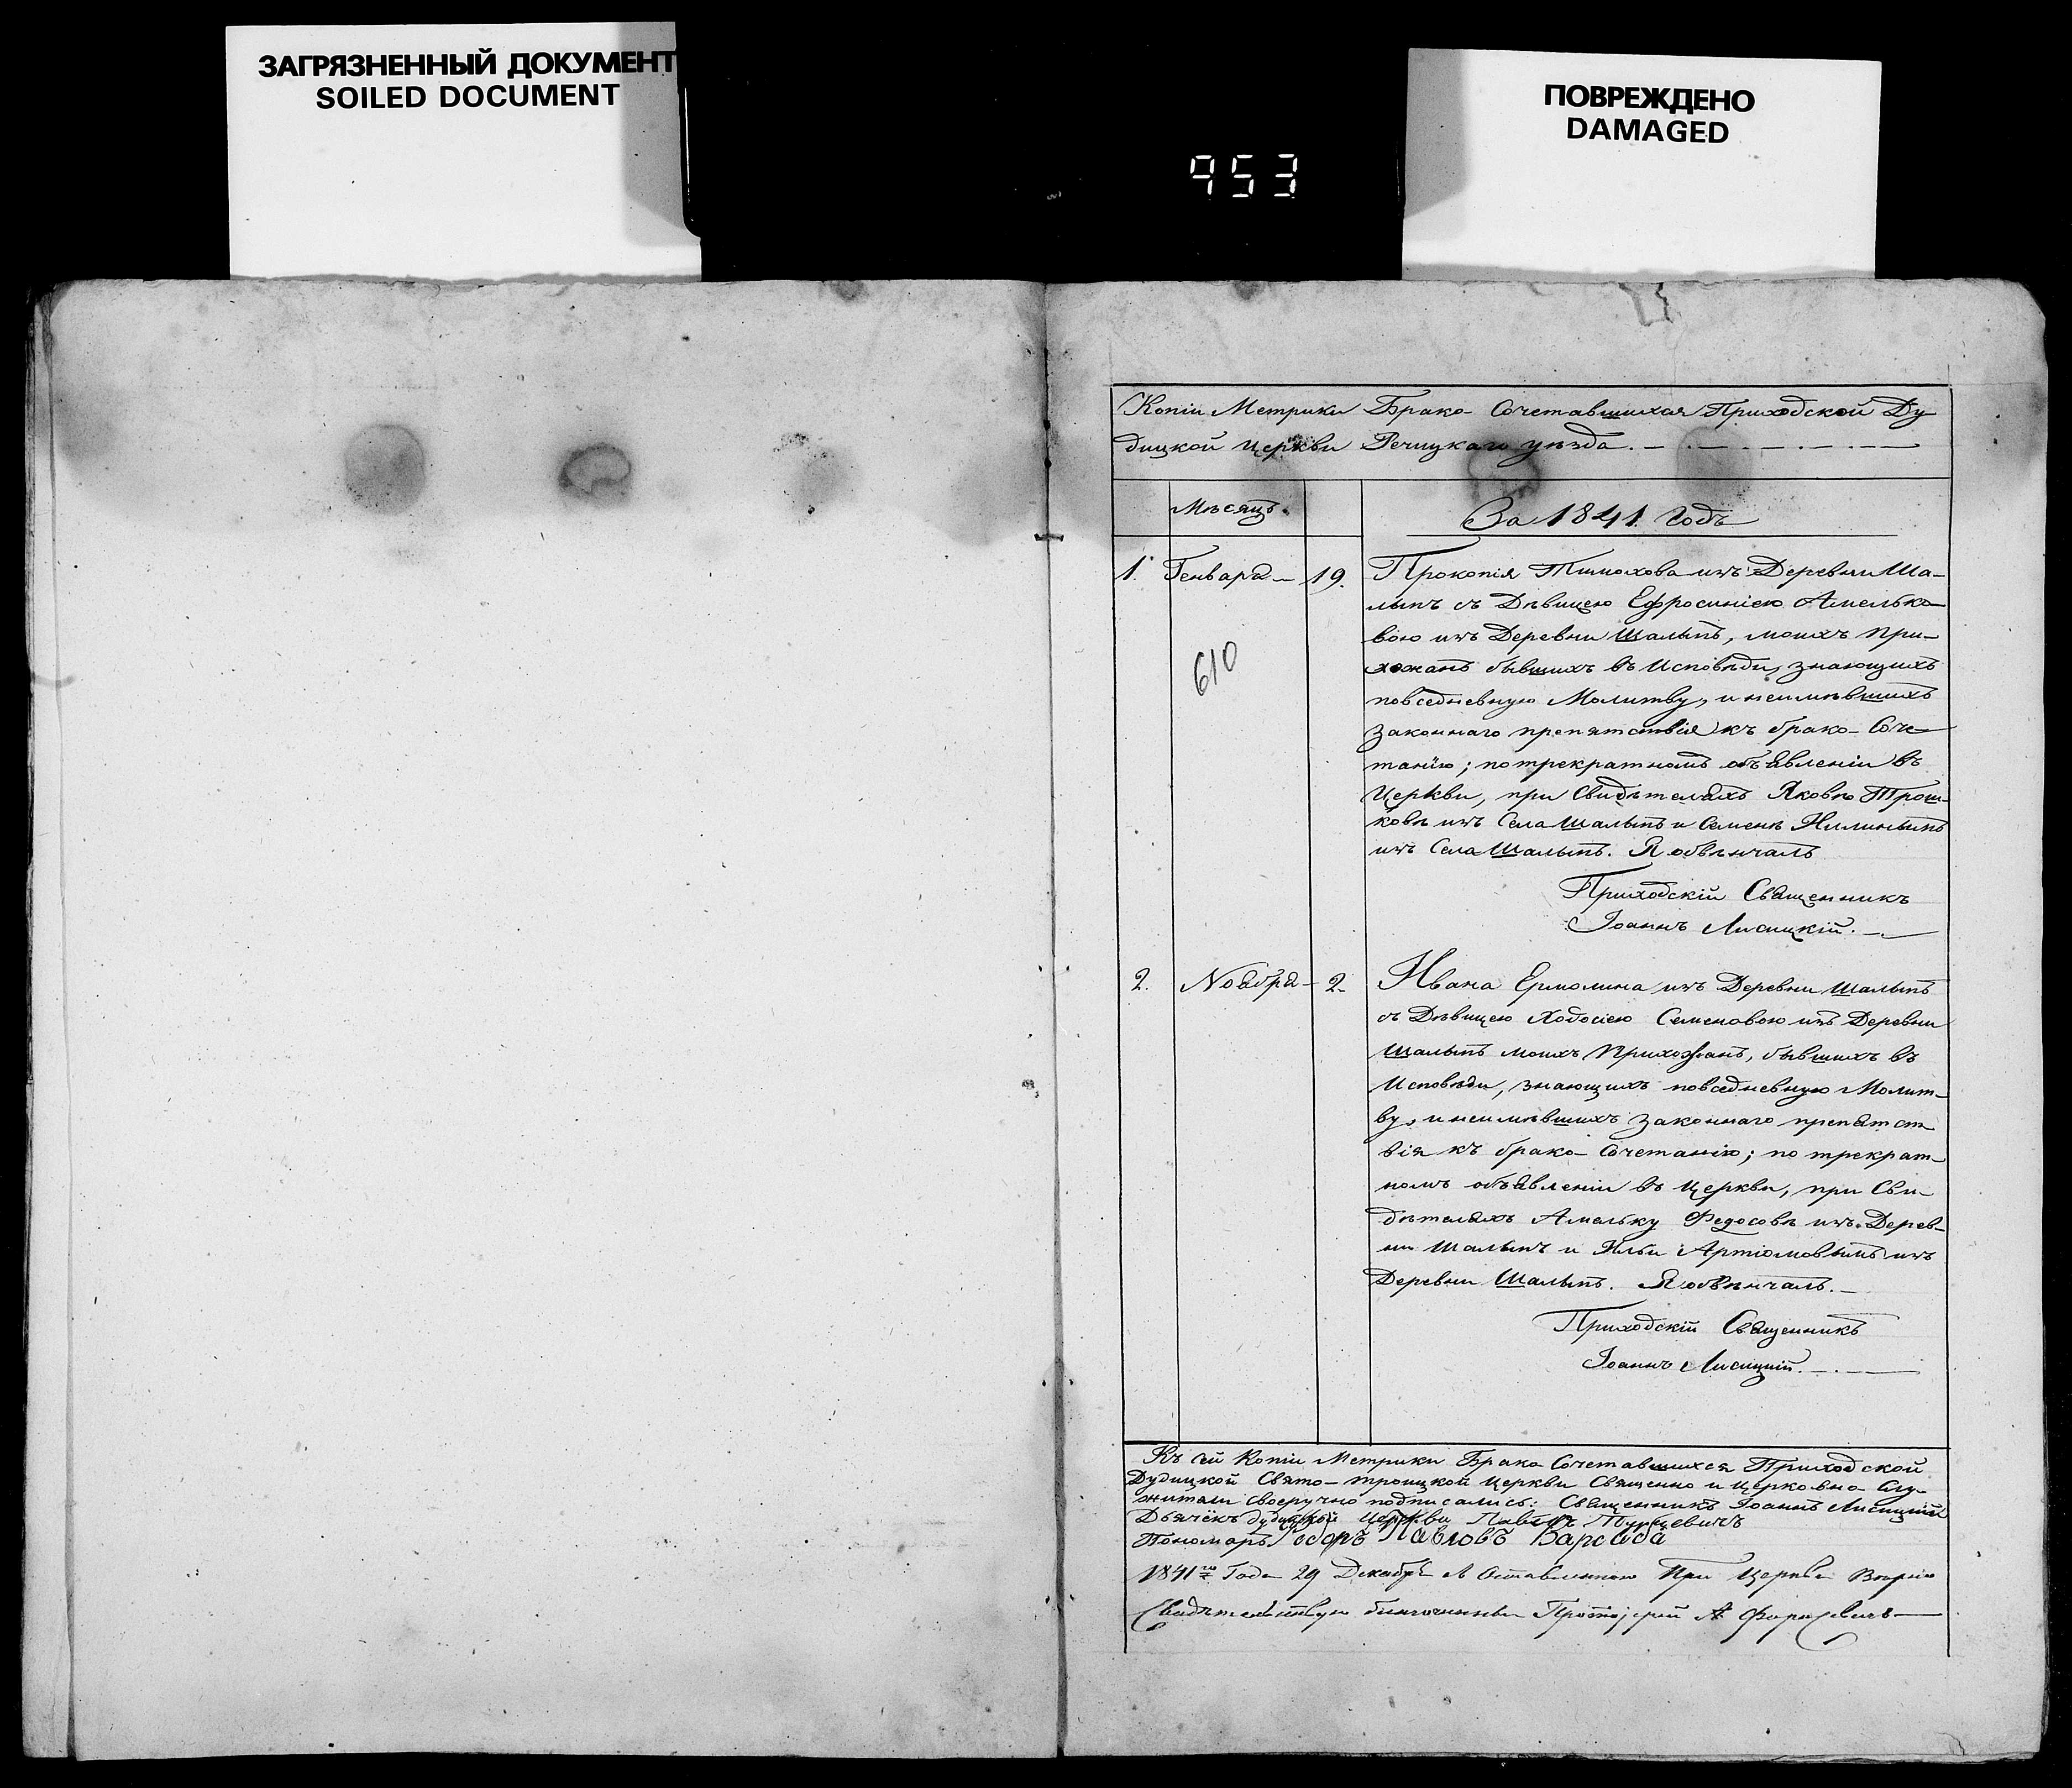 ЗАГРЯЗНЕННЫЙ ДОКУМЕНТ
SOILED DOCUMENT
ПОВРЕЖДЕНО
DAMAGED
953
Копіи Метрики Брако-Сочетавшихся Приходской Ду
дицкой Церкви Речицкаго уѣзда.
Мѣсяцъ.
За 1841. Годъ
1. Генваря 19. Прокопія Тимохова изъ Деревни Ша-
лыпъ съ Дѣвицею Ефросиніею Амелько-
вою изъ Деревни Шалыпъ, моихъ при-
хожанъ бывшихъ въ Исповѣди, знающихъ
повседневную Молитву, и неимѣвшихъ
законнаго препятствія къ брако-Соче-
танію; по трекратномъ объявленіи въ
Церкви, при Свидѣтеляхъ Яковѣ Трош-
ковѣ изъ Села Шалыпъ и Семенѣ
изъ Села Шалыпъ. Я обвѣнчалъ
610
Приходскій Священникъ
Іоаннъ Лисицкій.
2. Ноября 2. Ивана Ермолина изъ Деревни Шалыпъ
съ Дѣвицею Ходосіею Семеновою изъ Деревни
Шалыпъ моихъ Прихожанъ, бывшихъ въ
Исповѣди, знающихъ повседневную Молит-
ву, и неимѣвшихъ законнаго препятст
вія къ брако-Сочетанію; по трекрат-
номъ объявленіи въ Церкви, при Сви-
дѣтеляхъ Амельку Федосовѣ изъ Дерев-
ни Шалыпъ и Ильи Артіомовымъ изъ
Деревни Шалыпъ. Я обвѣнчалъ.
Приходскій Священникъ
Іоаннъ Лисицкій.
Къ сей Копіи Метрики Брако Сочетавшихся Приходской
Дудицкой Свято-Троицкой Церкви Священно и Церковно-Слу-
жители своеручно подписались: Священникъ Іоаннъ Лисицкій
Дьячёкъ Дудицкой Церкви Павелъ Турцевичъ
Пономарь Павловъ Варсаба
1841го Года 29 Декабря Оставленною При Церкви Вѣрно
Свидѣтельствую Благочинный Протоіерей А.